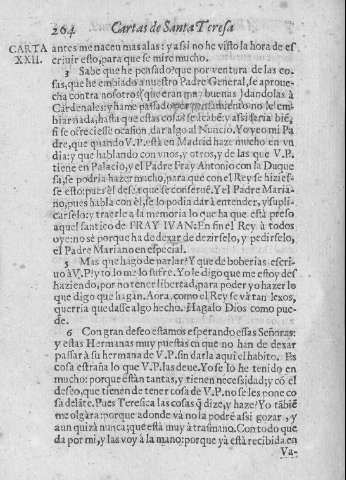 264 Cartas de Santa Teresa
CARTA
XXII.
antes me nacen mas alas: y assi no he visto la hora de es
criuir esto, para que se mire mucho.
3 Sabe que he pensado? que por ventura de las co-
sas, que he embiado a nuestro Padre General, se aproue-
cha contra nosotros (que eran muy buenas) dandolas à
Cardenales: y hame passado por pensamiento no le em-
biar nada, hasta que estas cosas se acabē; y assi seria biē,
si se ofreciesse ocasion, dar algo al Nuncio. Yo veo mi Pa
dre, que quando V.P. està en Madrid haze mucho en vn
dia: y que hablando con vnos, y otros, y de las que V.P.
tiene en Palacio, y el Padre Fray Antonio con la Duque
sa, se podria hazer mucho, para que con el Rey se hizies-
se esto; pues èl dessea que se conserue. Y el Padre Maria-
no, pues habla con èl, se lo podia dar à entender, y supli-
carselo: y traerle a la memoria lo que ha que està preso
aquel santico de FRAY IVAN: En fin el Rey à todos
oye: no sè porque ha de dexar de dezirselo, y pedirselo,
el Padre Mariano en especial.
5 Mas que hago de parlar? Y que de boberias escri-
uo à V.P! y to lo me lo sufre. Yo le digo que me estoy des
haziendo, por no tener libertad, para poder yo hazer lo
que digo que hagan. Aora, como el Rey se và tan lexos,
querria quedasse algo hecho. Hagalo Dios como pue-
de.
6 Con gran deseo estamos esperando essas Señoras:
y estas Hermanas muy puestas en que no han de dexar
passar à su hermana de V.P. sin darla aqui el habito. Es
cosa estraña lo que V.P. las deue. Yo se lo he tenido en
mucho: porque estàn tantas, y tienen necessidad; y cō el
deseo, que tienen de tener cosa de V.P. no se les pone co
sa delāte. Pues Teresica las cosas q̄ dize, y haze? Yo tābiē
me olgàra: porque adonde và no la podrè assi gozar, y
aun quizà nunca; que està muy à trasmano. Con todo que
da por mi, y las voy à la mano: porque yà està recibida en
Va-